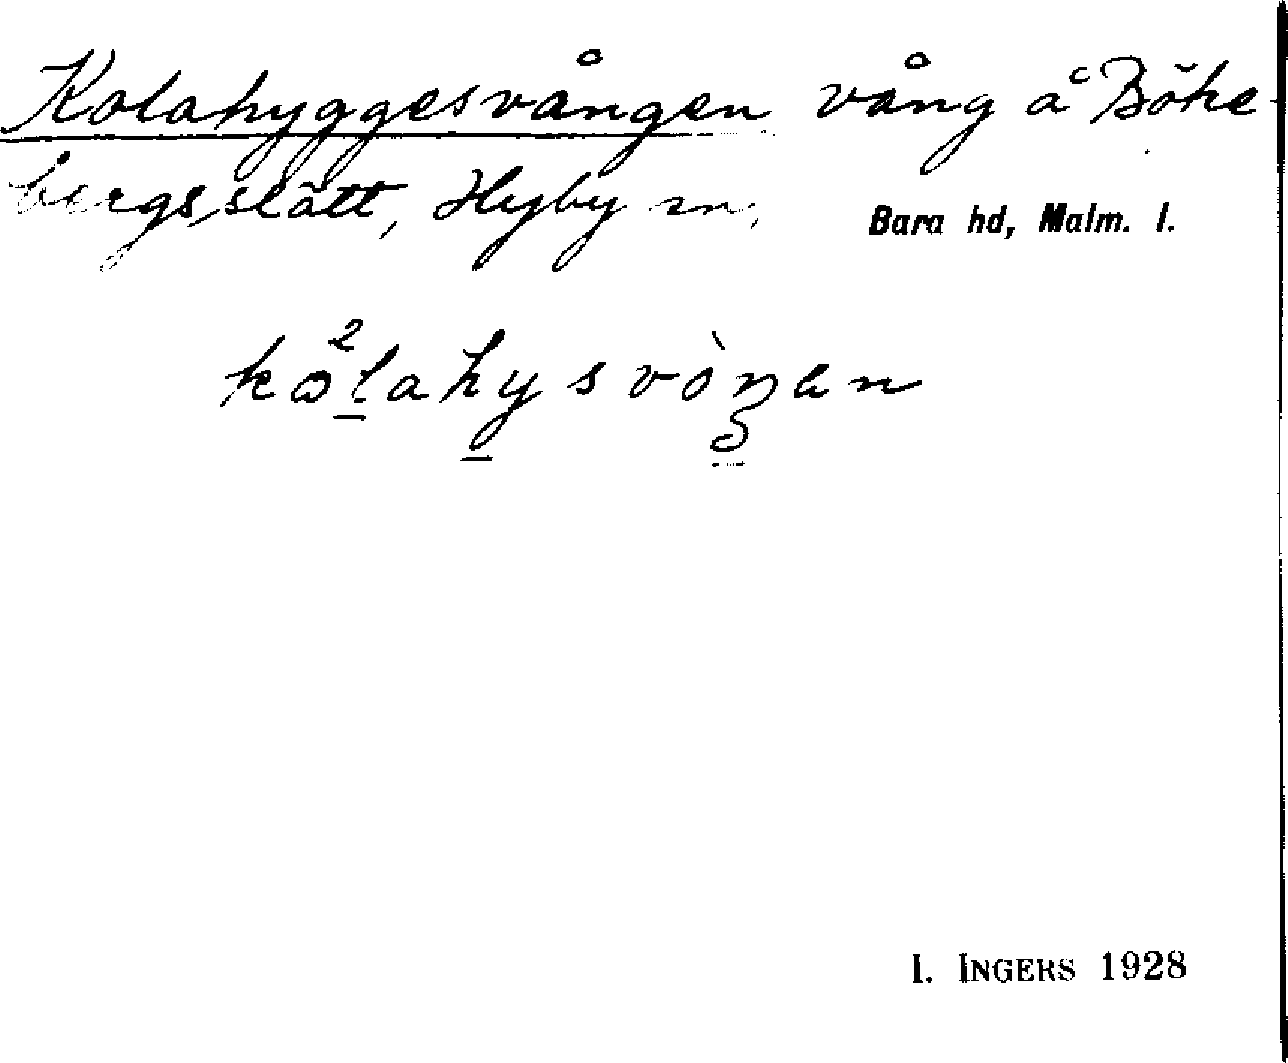 Kolahyggesvången vång å Böke-
bergsslätt, Hyby sn, Bara hd, Malm. l.
I. INGERS 1928